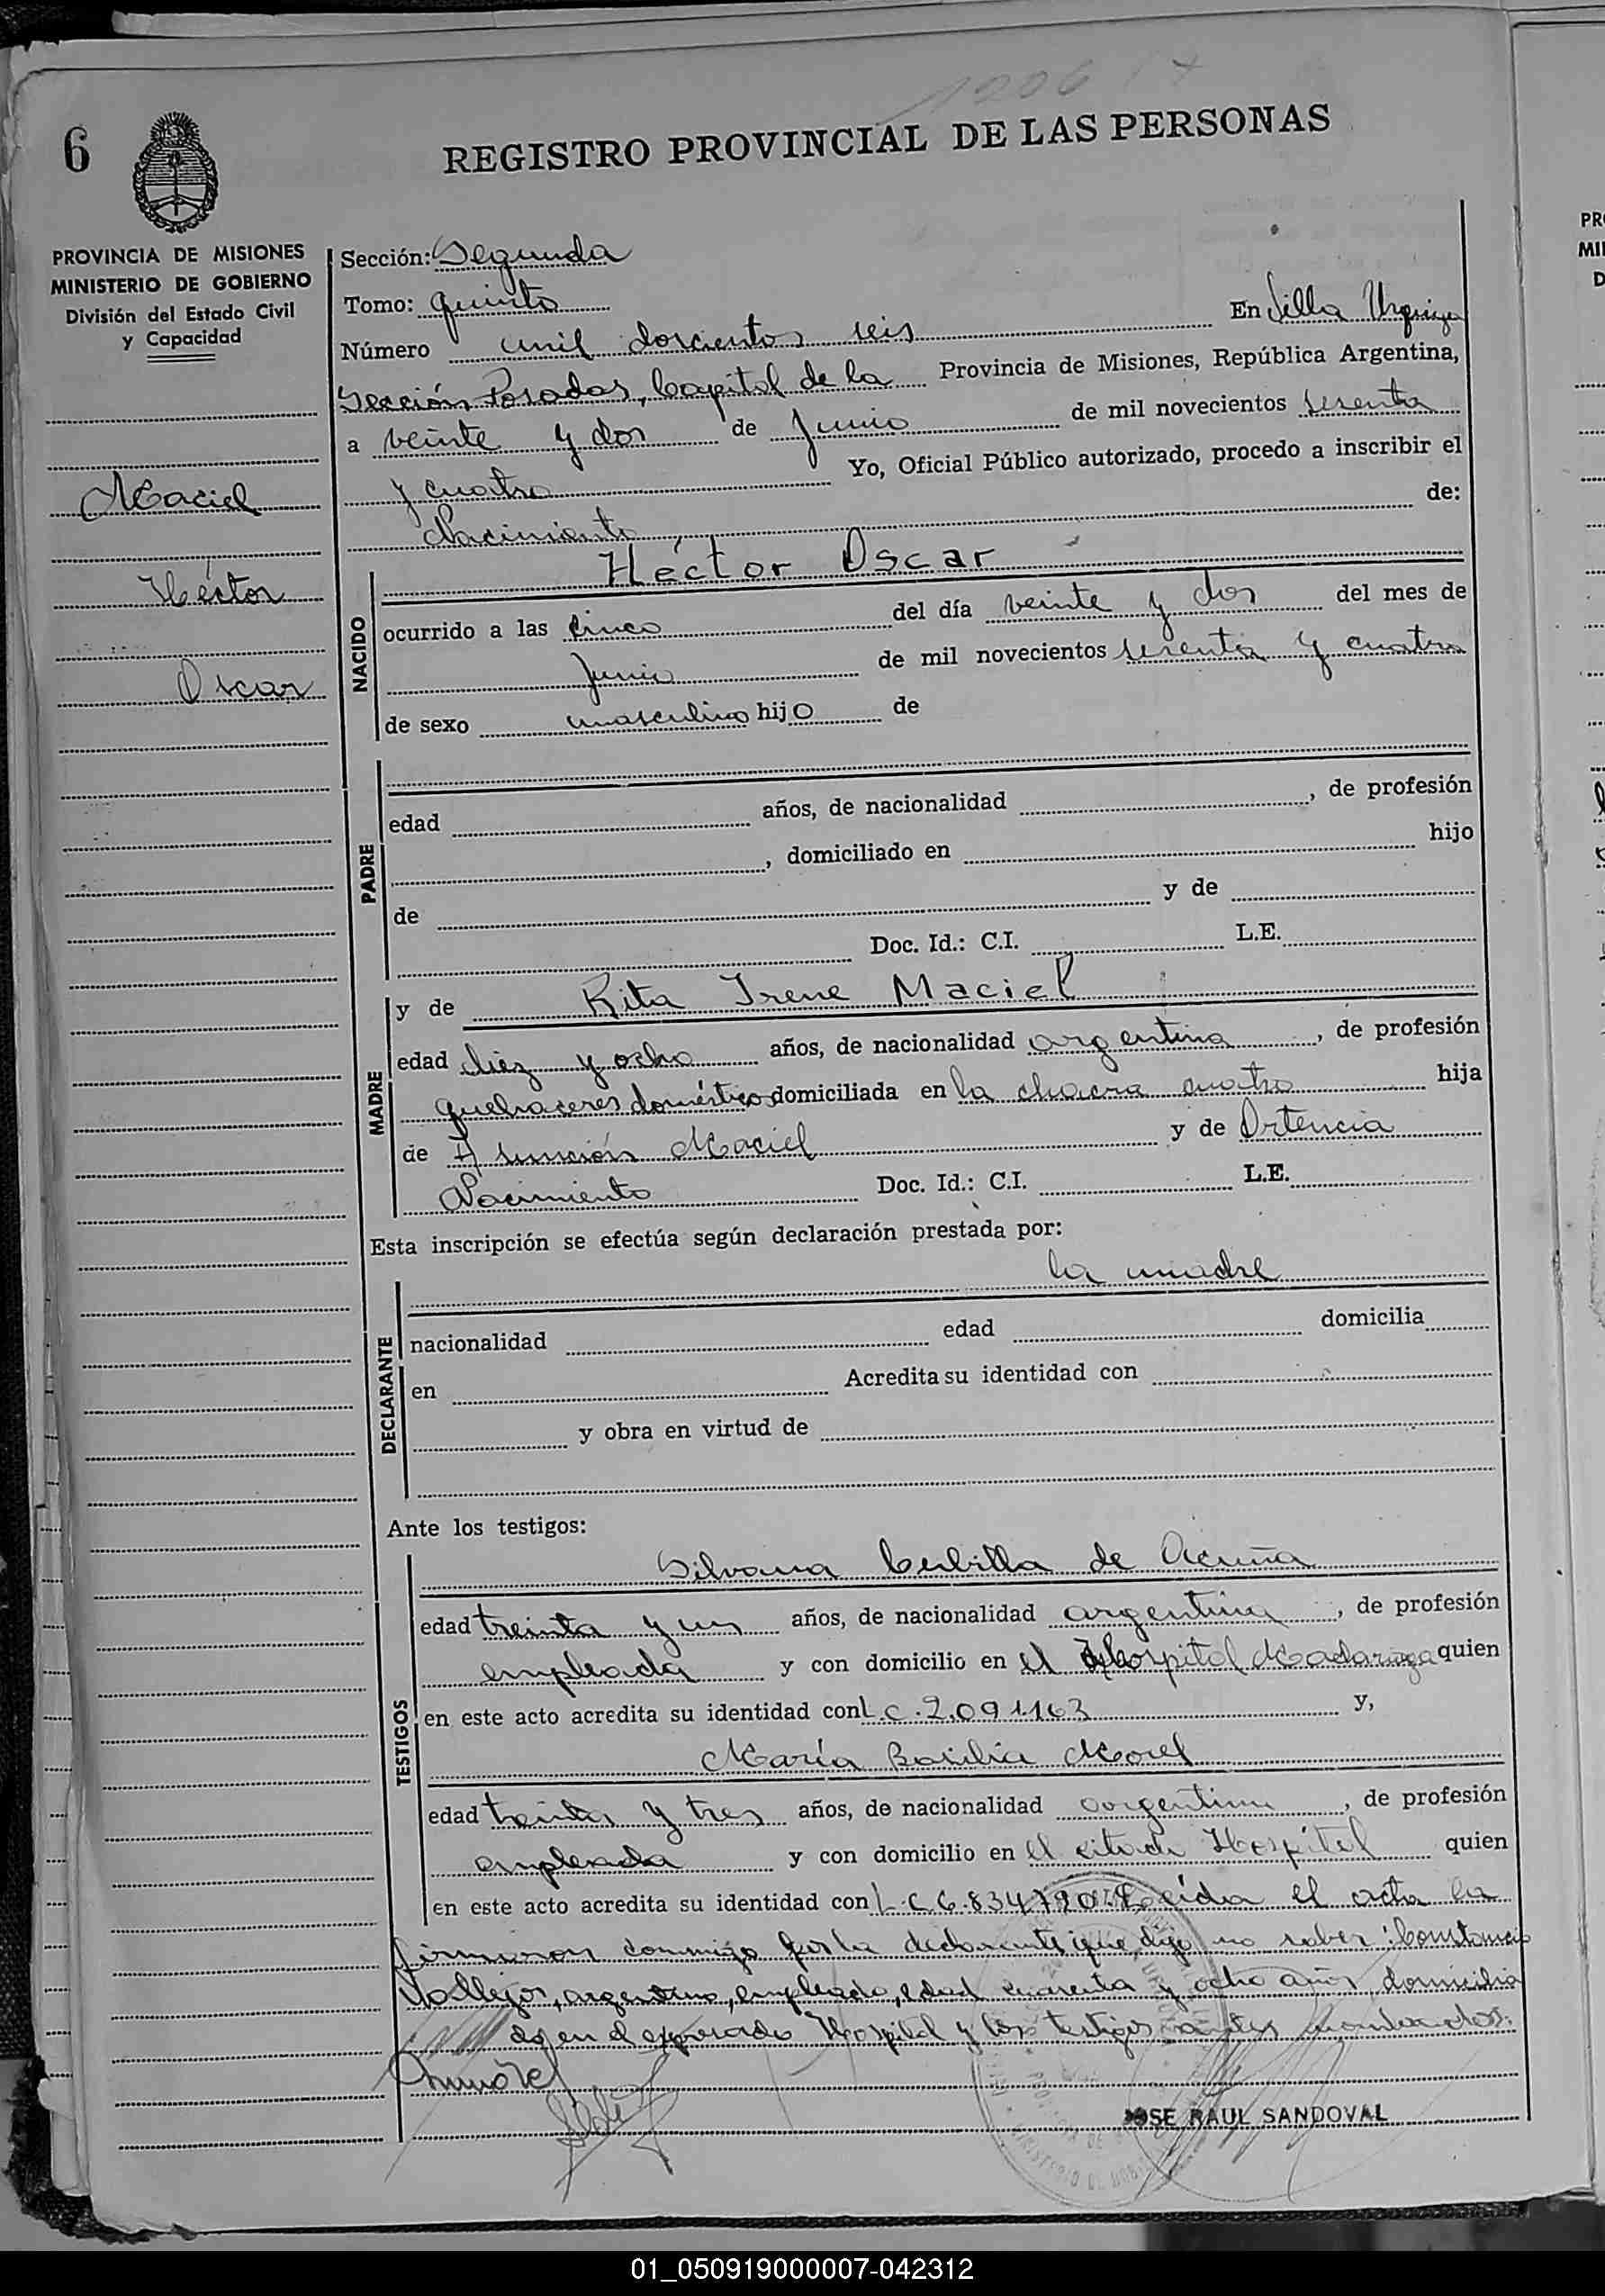 1206 / 4
6
REGISTRO PROVINCIAL DE LAS PERSONAS
PROVINCIA DE MISIONES
MINISTERIO DE GOBIERNO
División del Estado Civil
y Capacidad
Maciel
Héctor
Oscar
Sección: Segunda
Tomo: quinto
Número mil doscientos seis En Villa Urquiza
Sección Posadas, Capital de la Provincia de Misiones, República Argentina,
a veinte y dos de Junio de mil novecientos sesenta
y cuatro Yo, Oficial Público autorizado, procedo a inscribir el
Nacimiento de:
NACIDO
Héctor Oscar
ocurrido a las cinco del día veinte y dos del mes de
Junio de mil novecientos sesenta y cuatro
de sexo masculino hijo de
PADRE
edad años, de nacionalidad , de profesión
, domiciliado en hijo
de y de
Doc. Id.: C.I. L.E.
MADRE
y de Rita Irene Maciel
edad diez y ocho años, de nacionalidad argentina , de profesión
quehaceres domésticos domiciliada en la chacra cuatro hija
de Asunción Maciel y de Ortencia
Nacimiento Doc. Id.: C.I. L.E.
Esta inscripción se efectúa según declaración prestada por:
la madre
DECLARANTE
nacionalidad edad domicilia
en Acredita su identidad con
y obra en virtud de
Ante los testigos:
TESTIGOS
Silvana Cubilla de Acuña
edad treinta y un años, de nacionalidad argentina , de profesión
empleada y con domicilio en el Hospital Madariaga quien
en este acto acredita su identidad con L.C. 2.091163 y,
María Basilia Morel
edad treinta y tres años, de nacionalidad argentina , de profesión
empleada y con domicilio en el citado Hospital quien
en este acto acredita su identidad con L.C. 6.834790. Leída el acta la
firmaron conmigo por la declarante que dijo no saber: Constancio
Vallejos, argentino, empleado, edad cuarenta y ocho años, domicilia
do en el expresado Hospital y los testigos antes nombrados.
JOSE RAUL SANDOVAL
01_050919000007-042312